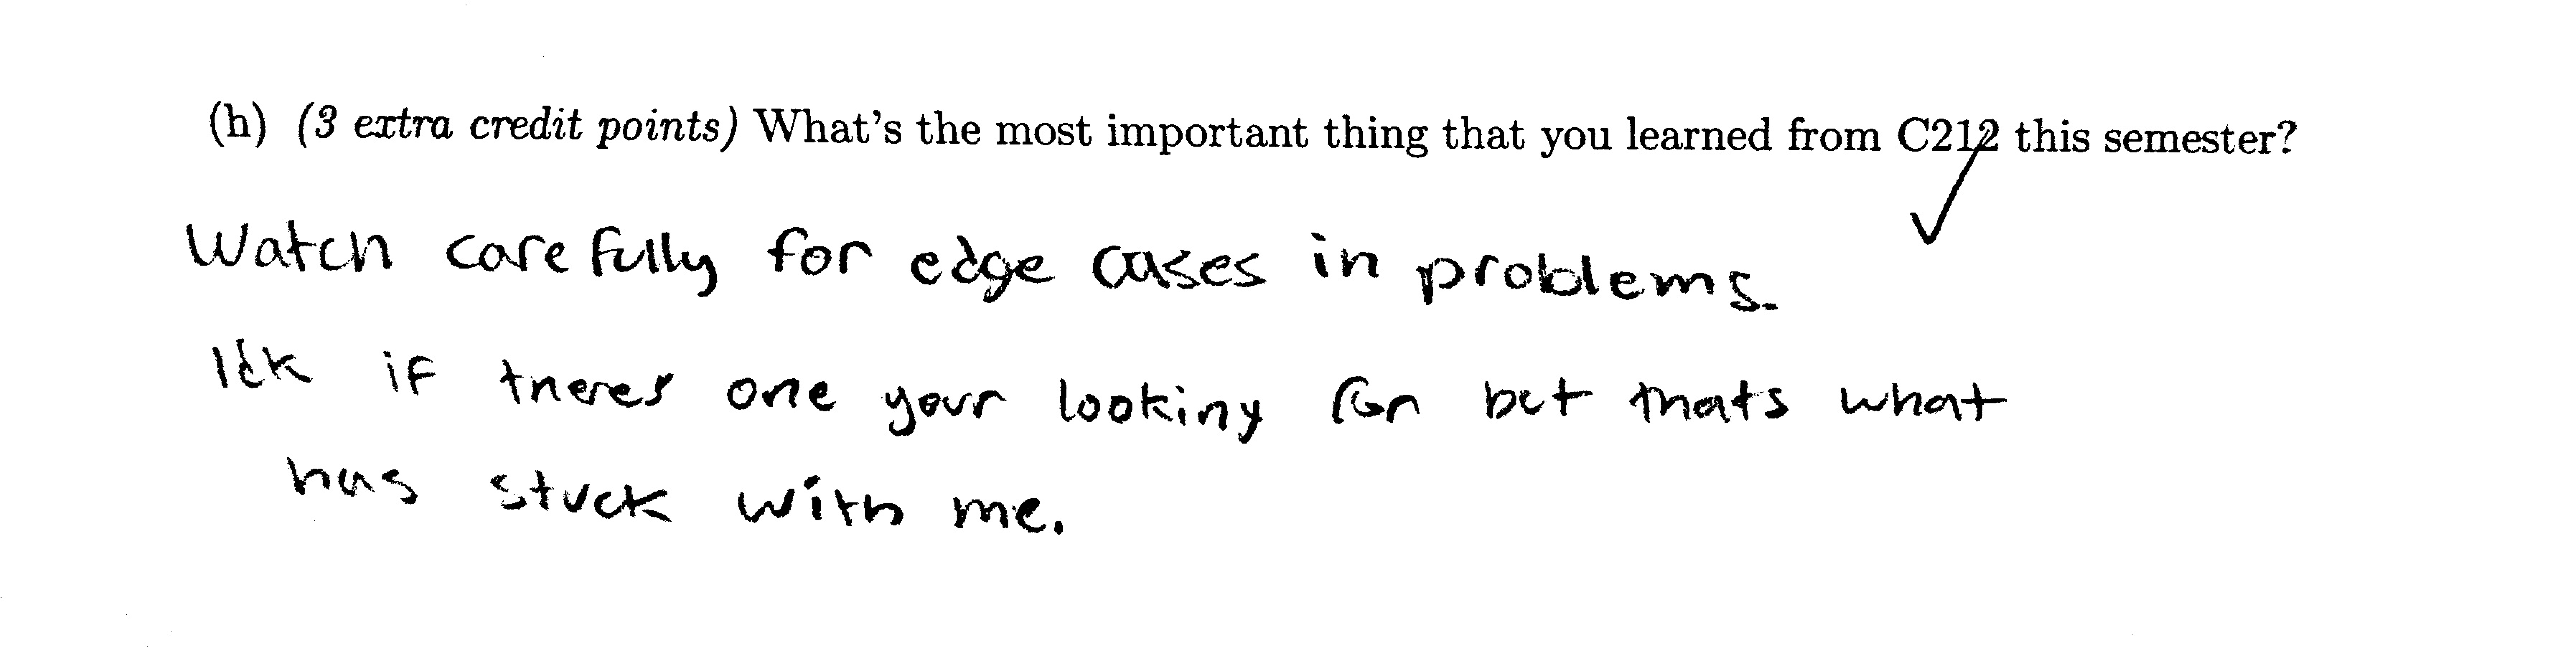 (h) (3 extra credit points) What's the most important thing that you learned from C212 this semester?
Watch carefully for edge cases in problems.
Idk if theres one your looking for but thats what
has stuck with me.